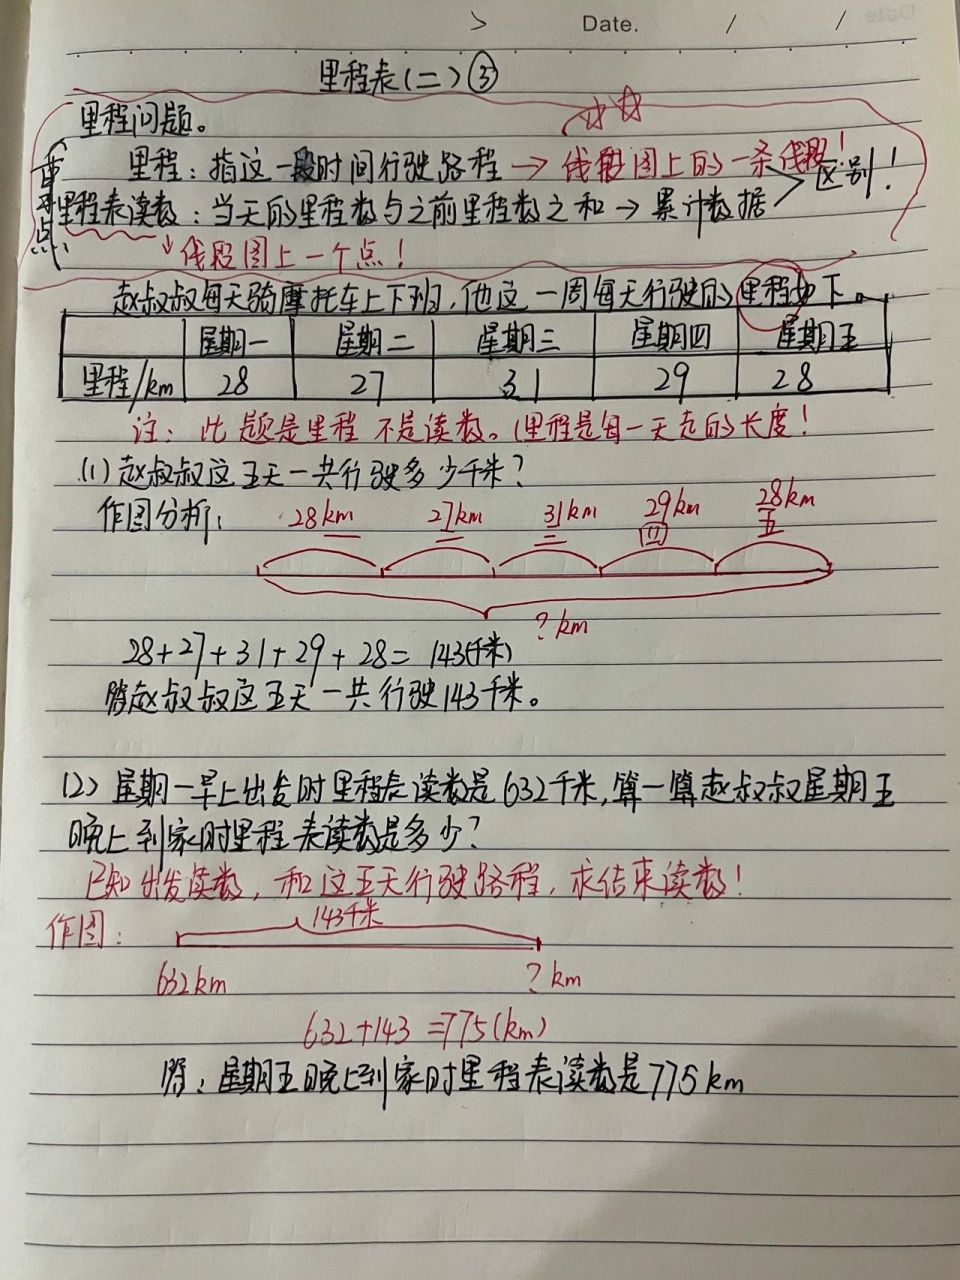 Date. / /
里程表(二)③
里程问题。
里程：指这一段时间行驶路程→线段图上的一条线段！
重点
里程表读数：当天的里程数与之前里程数之和→累计数据 > 区别！
↓线段图上一个点！
赵叔叔每天骑摩托车上下班，他这一周每天行驶的里程如下。
星期一 星期二 星期三 星期四 星期五
里程/km 28 27 31 29 28
注：此题是里程 不是读数。(里程是每一天走的长度！
(1)赵叔叔这五天一共行驶多少千米？
作图分析：
28km 27km 31km 29km 28km
一 二 三 四 五
？km
28+27+31+29+28= 143(千米)
答赵叔叔这五天一共行驶143千米。
(2)星期一早上出发时里程表读数是632千米,算一算赵叔叔星期五
晚上到家时里程表读数是多少？
已知出发读数，和这五天行驶路程，求结束读数！
作图：
143千米
632km ？km
632+143=775(km)
答：星期五晚上到家时里程表读数是775km